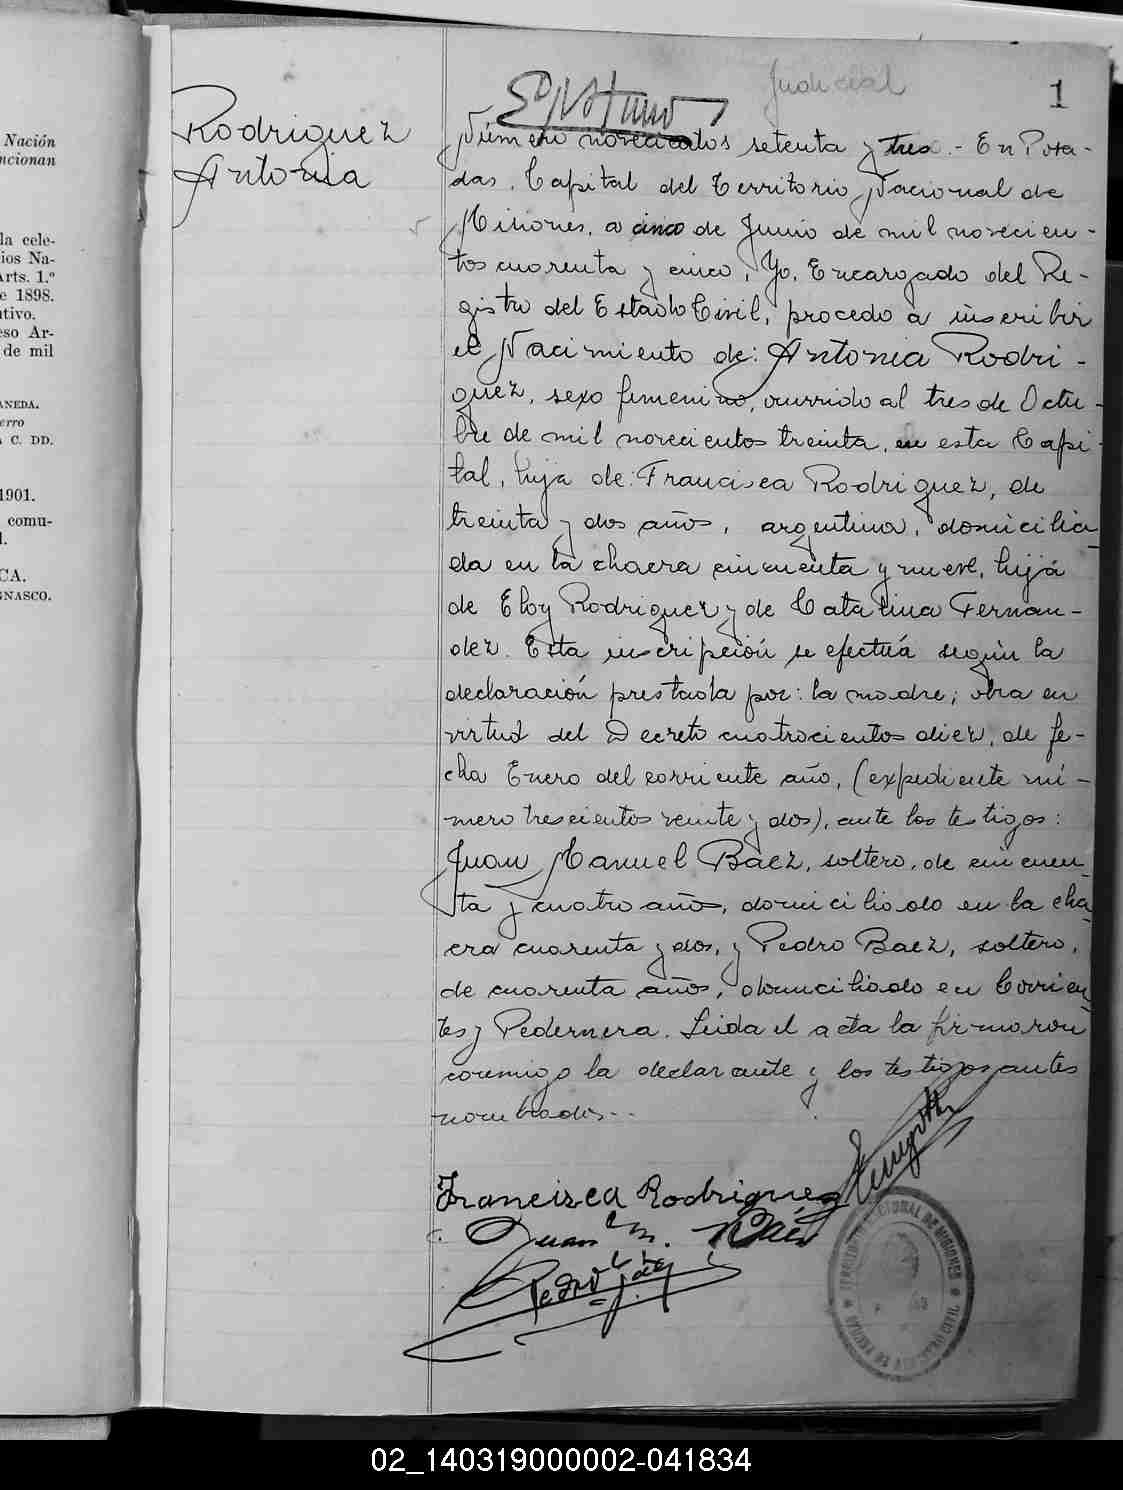 Nación
ncionan
la cele-
ios Na-
Arts. 1.º
e 1898.
utivo.
eso Ar-
de mil
ANEDA.
erro
A C. DD.
1901.
comu-
CA.
GNASCO.
Rodriguez
Antonia
Judicial
1
Número novecientos setenta y tres.- En Posa-
das, Capital del Territorio Nacional de
Misiones, a cinco de Junio de mil novecien-
tos cuarenta y cinco, Yo, Encargado del Re-
gistro del Estado Civil, procedo a inscribir
el Nacimiento de: Antonia Rodri-
guez, sexo femenino, ocurrido al tres de Octu-
bre de mil novecientos treinta, en esta Capi-
tal, hija de: Francisca Rodriguez, de
treinta y dos años, argentina, domicilia-
da en la chacra cincuenta y nueve, hija
de Eloy Rodriguez y de Catalina Fernan-
dez. Esta inscripción se efectúa según la
declaración prestada por: la madre; obra en
virtud del Decreto cuatrocientos diez, de fe-
cha Enero del corriente año, (expediente nú-
mero trescientos veinte y dos), ante los testigos:
Juan Manuel Baez, soltero, de cincuen-
ta y cuatro años, domiciliado en la cha-
cra cuarenta y dos, y Pedro Baez, soltero,
de cuarenta años, domiciliado en Corrien-
tes y Pedernera. Leida el acta la firmaron
conmigo la declarante y los testigos antes
nombrados.-
Francisca Rodriguez
Juan M. Báez
Pedro Báez
TERRITORIO NACIONAL DE MISIONES
CIVIL
02_140319000002-041834